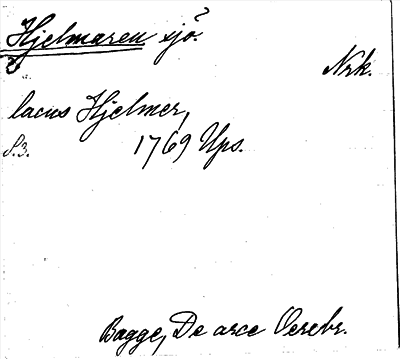 Hjelmaren sjö.
Nrk.
lacus Hjelmer,
S.3. 1769 Ups.
Bagge, De arce Oerebr.